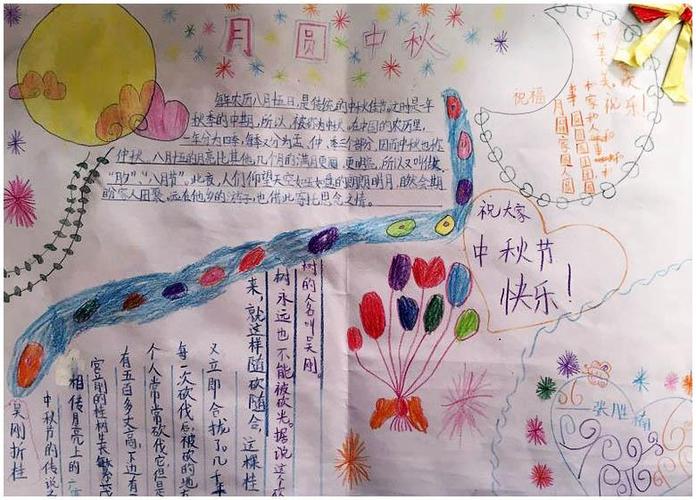 月圆中秋
每年农历八月十五日,是传统的中秋佳节。这时是一年
秋季的中期,所以,被称为中秋。在中国的农历里,
一年分为四季,每季又分为孟、仲、季三个部分,因而中秋也称
仲秋。八月十五的月亮比其他几个月的满月更圆,更明亮,所以又叫做
“月夕”,“八月节”。此夜,人们仰望天空如玉如盘的朗朗明月,自然会期
盼家人团聚。远在他乡的游子,也借此寄托思念之情。
祝福
月圆家圆人圆
祝大家
中秋节
快乐!
吴刚折桂
中秋节的传说之
相传月亮上的广
宫前的桂树生长繁茂
有五百多丈高,下边有
个人常常砍伐它,但是
每一次砍伐后,被砍的地
又立即合拢了。几千年
来,就这样随砍随合,这棵桂
树永远也不能被砍光。据说这个砍
树的人名叫吴刚。
张胜楠